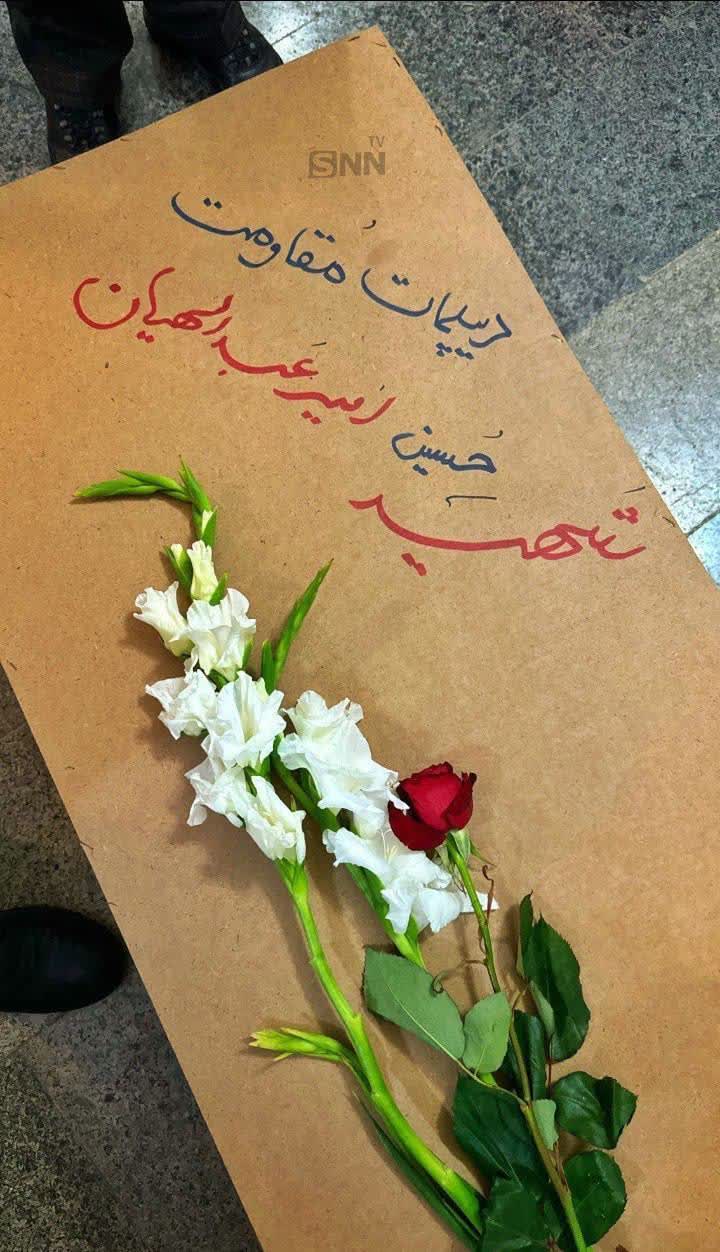 SNN TV
دیپلمات مُقاومت
شَهید حُسین اَمیرعَبداللهیان